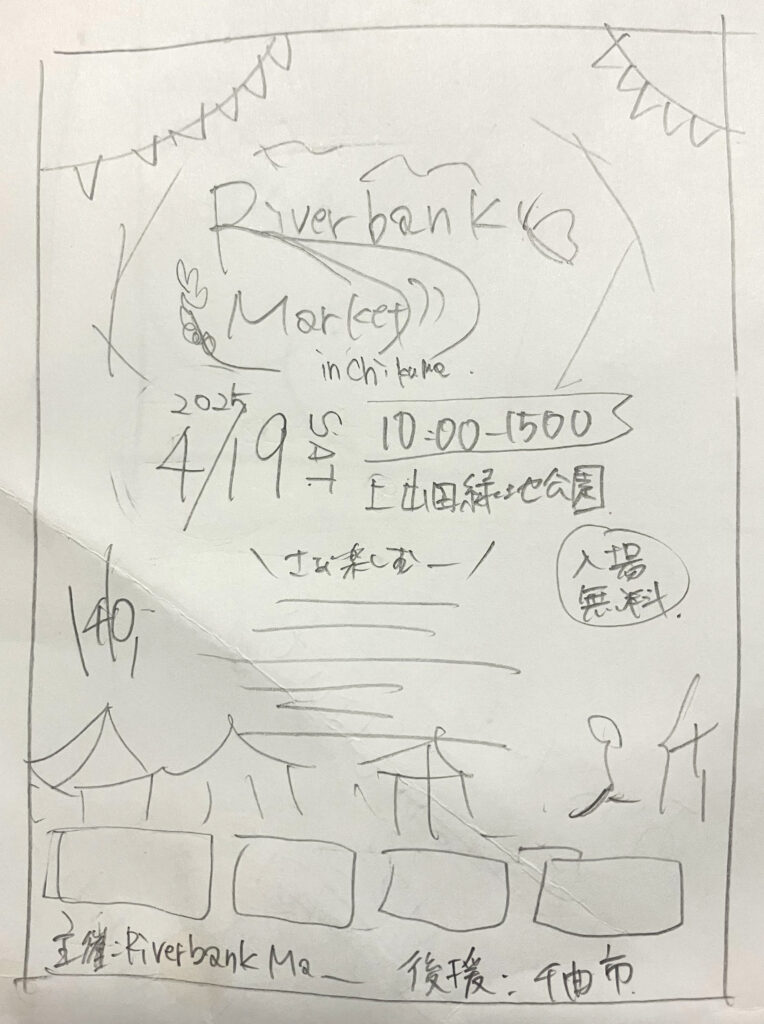 Riverbank
Market
in Chikuma.
2025
4/19 SAT
10:00-1500
上山田緑地公園
入場
無料.
\ さあ楽しむー /
主催:Riverbank Ma
後援:千曲市